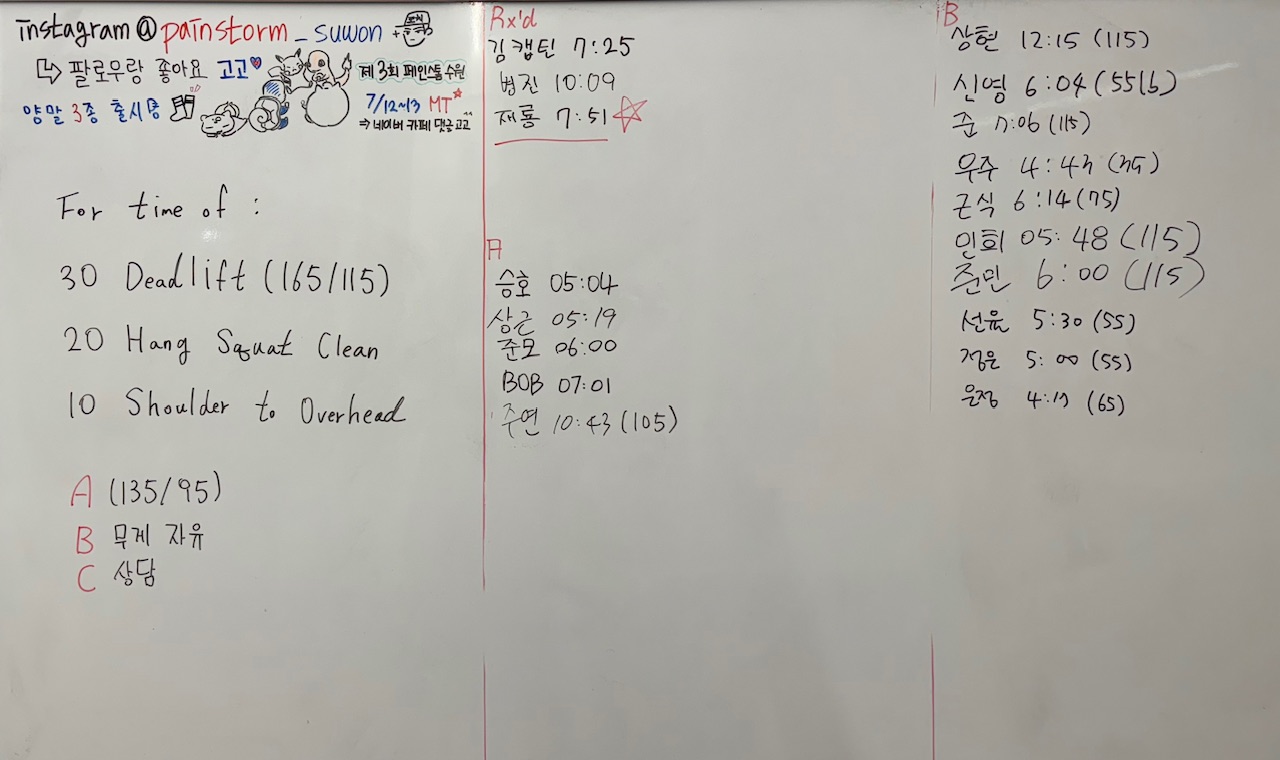 instagram@painstorm_suwon +
↳ 팔로우랑 좋아요 고고♥
양말 3종 출시중
제 3회 페인스톰 수원
7/12~13 MT☆
⇒ 네이버 카페 댓글 고고^^
For time of :
30 Deadlift (165/115)
20 Hang Squat Clean
10 Shoulder to Overhead
A (135/95)
B 무게 자유
C 상담
Rx'd
김캡틴 7:25
범진 10:09
재룡 7:51 ☆
A
승호 05:04
상근 05:19
준모 06:00
BOB 07:01
주연 10:43 (105)
B
상현 12:15 (115)
신영 6:04 (55lb)
준 7:06 (115)
우주 4:43 (35)
근식 6:14 (75)
인회 05:48 (115)
준민 6:00 (115)
선율 5:30 (55)
정은 5:00 (55)
윤정 (65)